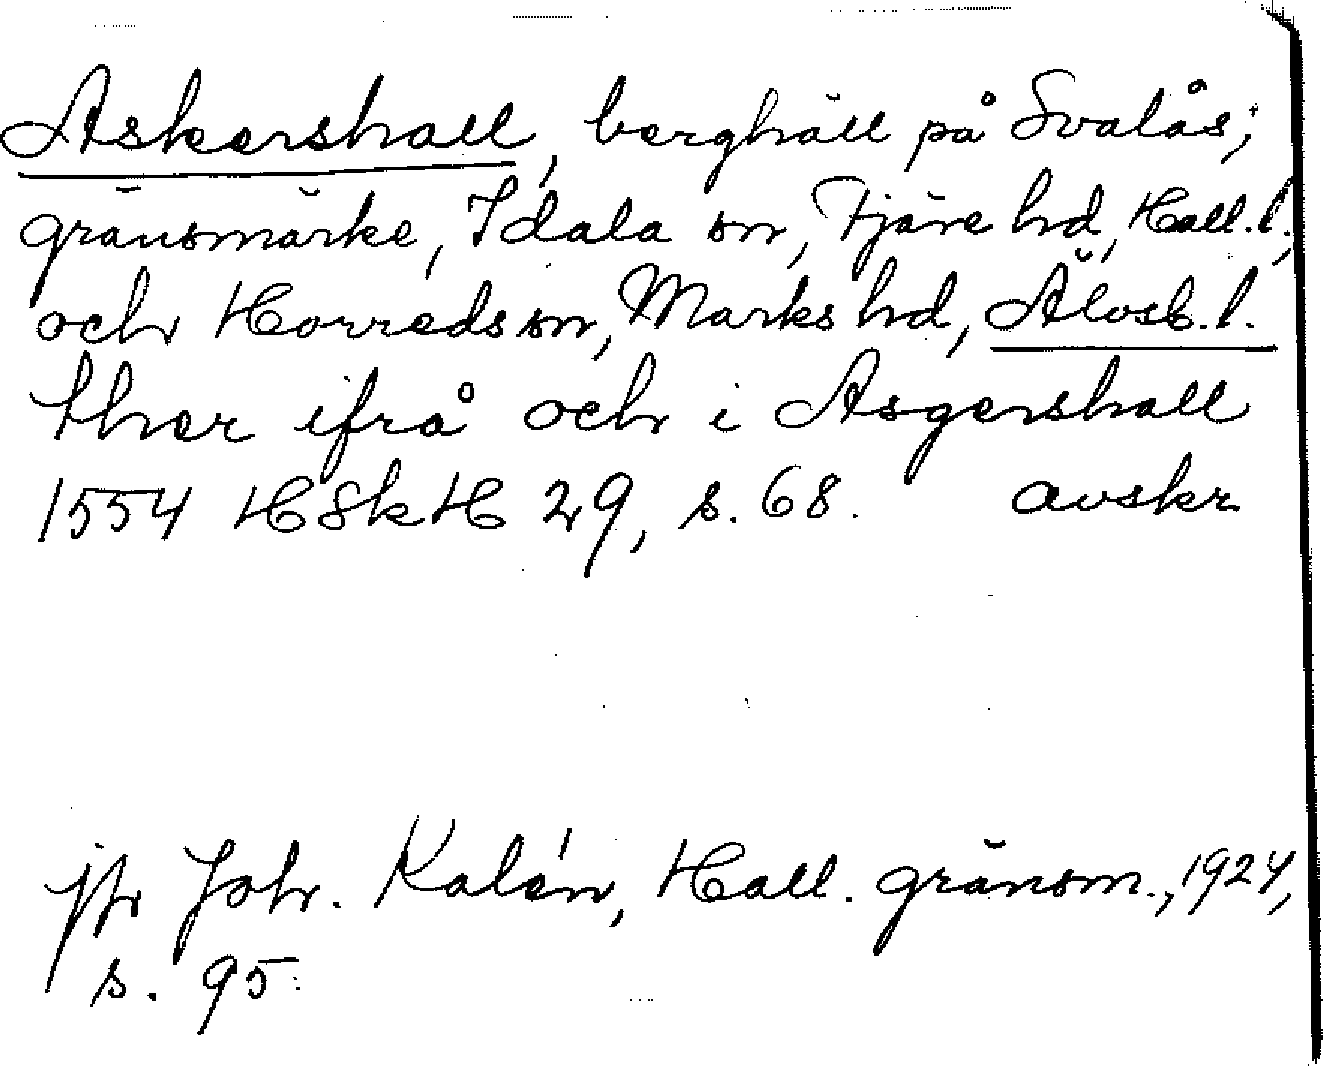 Askershall, berghäll på Svalås;
gränsmärke, Idala sn, Fjäre hd, Hall. l.,
och Horreds sn, Marks hd, Älvsb. l.
ther ifrå och i Asgershall
1554 HSkH 29, s. 68. avskr
jfr Joh. Kalén, Hall. gränsm., 1924,
s. 95.